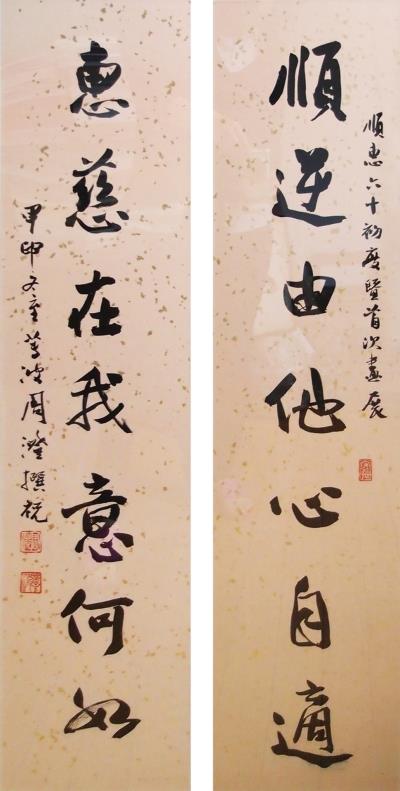 順惠六十初度暨首次畫展
順逆由他心自適
惠慈在我意何如
甲申又重蓴波周澄撰祝